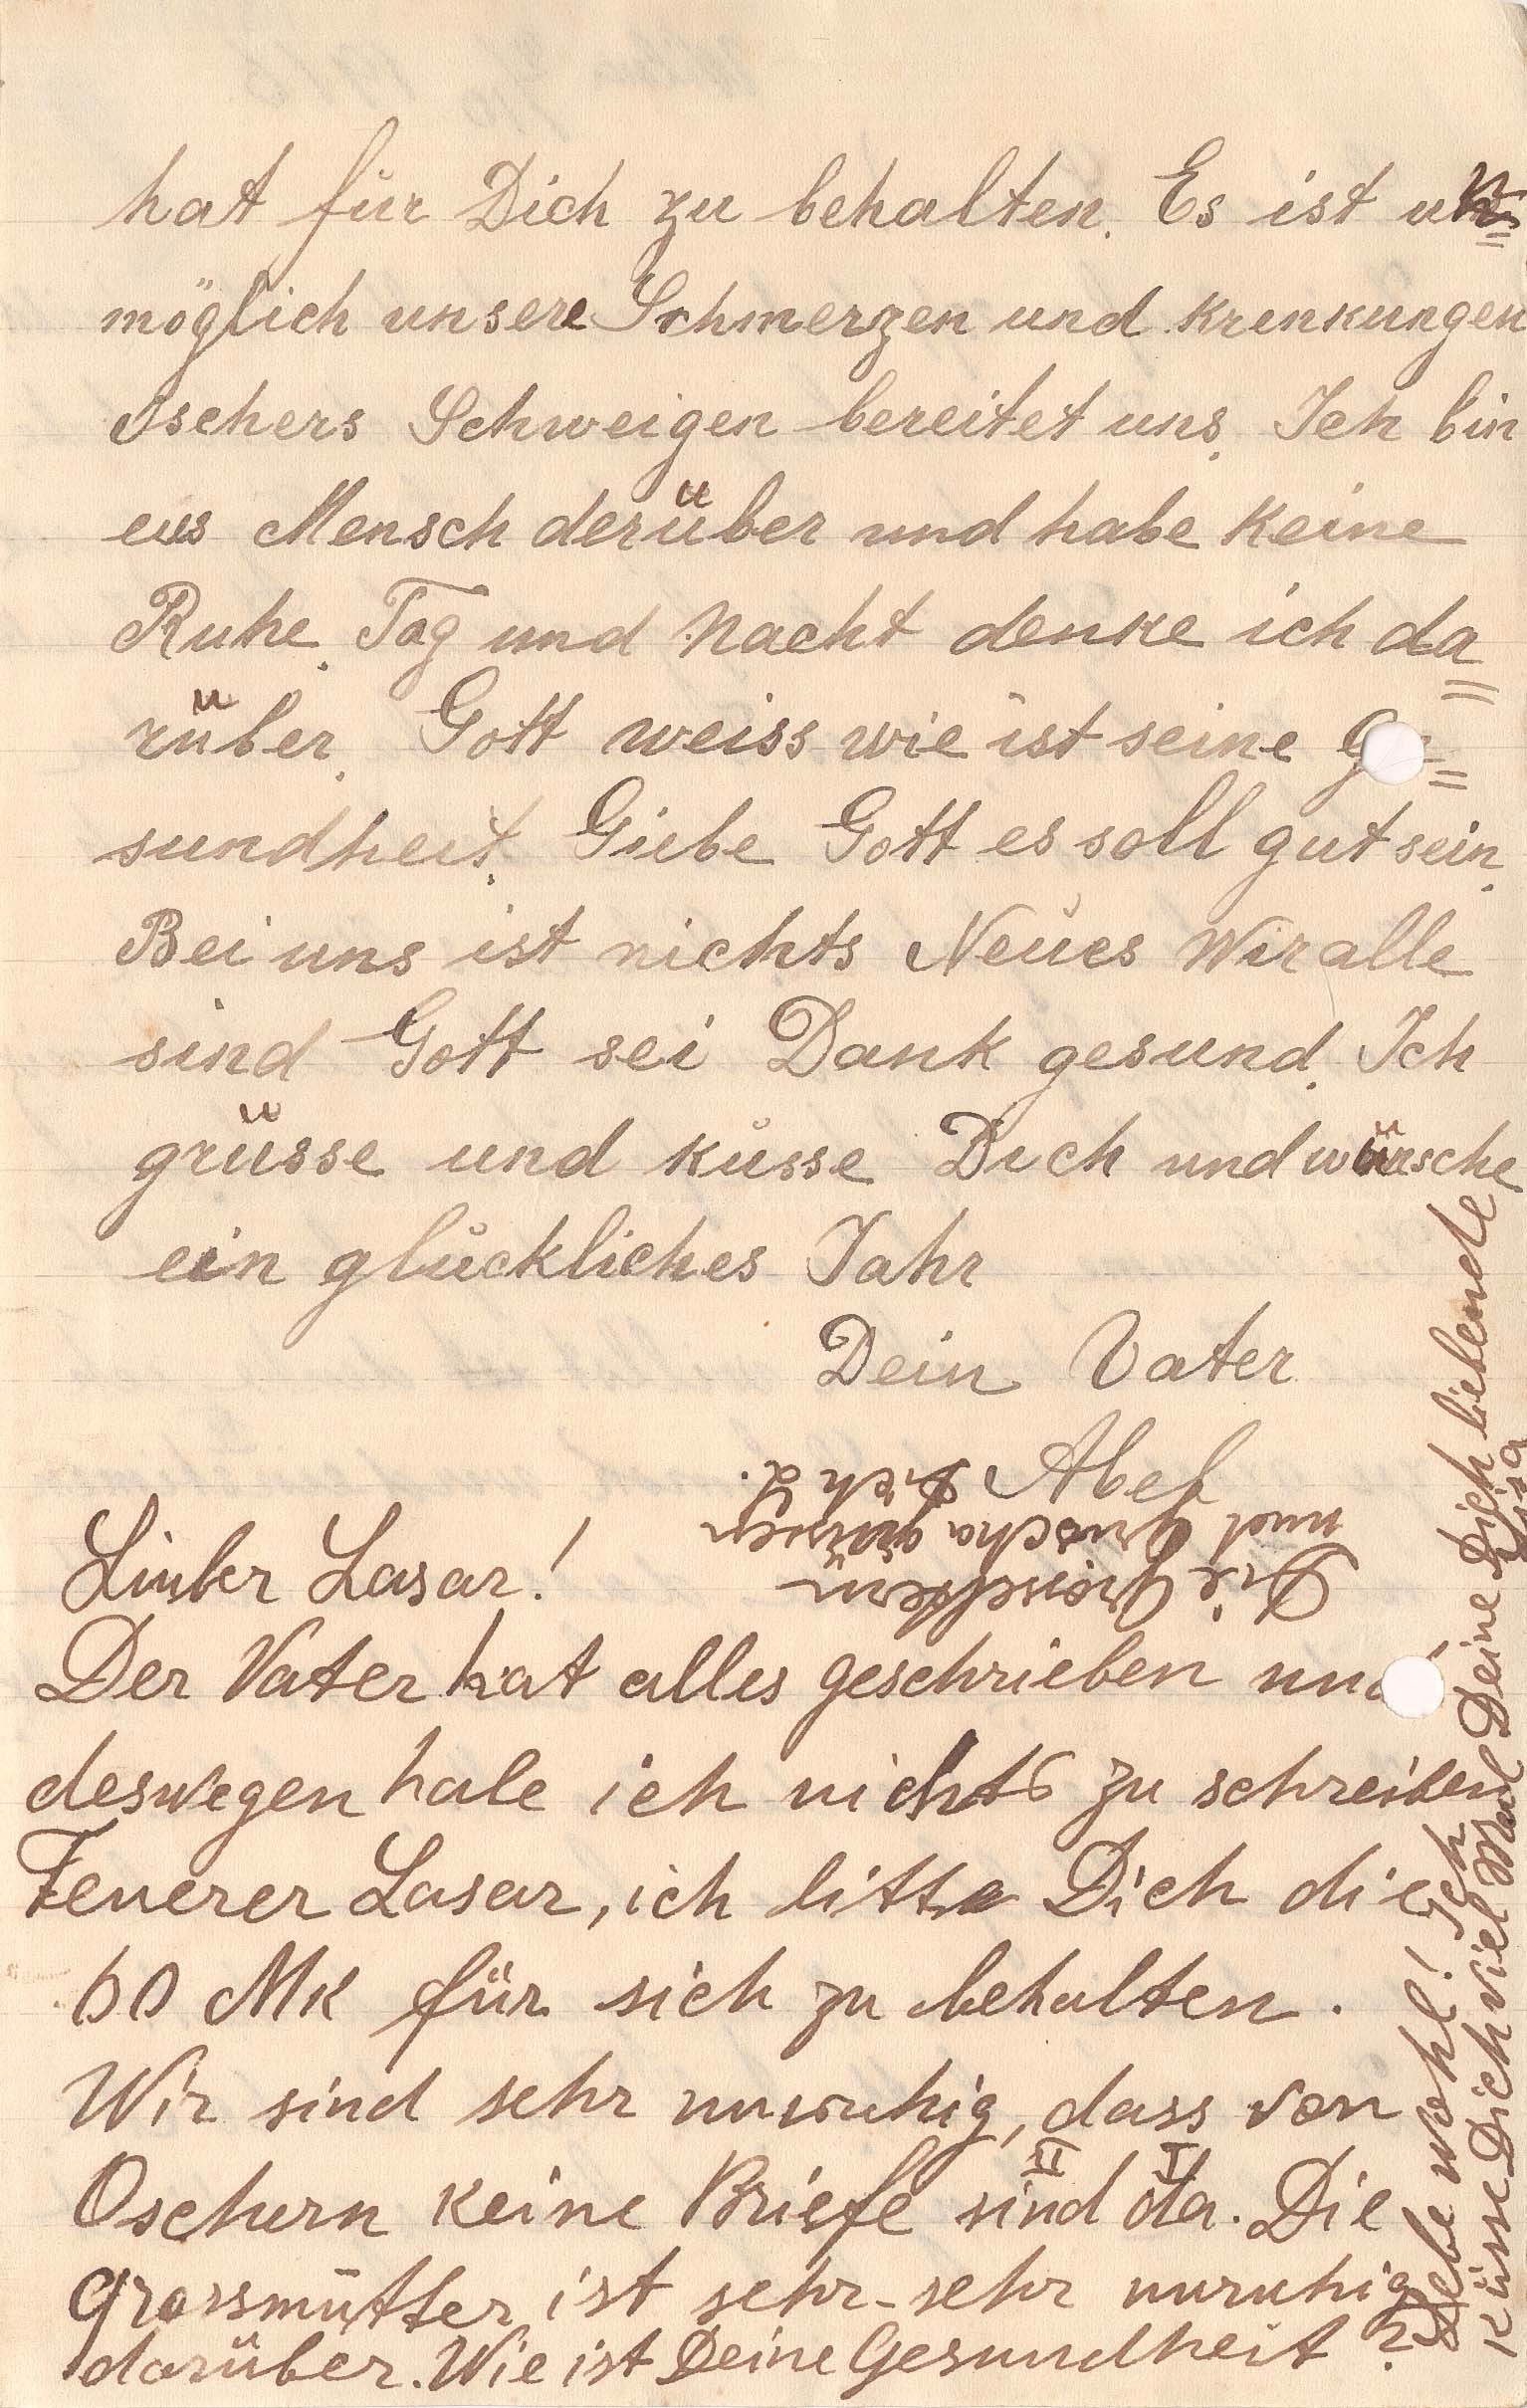 hat für Dich zu behalten. Es ist un=
möglich unsere Schmerzen und Krenkungen
Oschers Schweigen bereitet uns. Ich bin
eus Mensch derüber und habe keine
Ruhe. Tag und Nacht denke ich da=
rüber. Gott weiss wie ist seine Ge=
sundheit. Giebe Gott es soll gut sein.
Bei uns ist nichts Neues Wir alle
sind Gott sei Dank gesund. Ich
grüsse und küsse Dich und wünsche
ein glückliches Jahr
Dein Vater
Abel
Die Grosseltern
und Gruscha grüssen
Dich
Lieber Lasar!
Der Vater hat alles geschrieben und
deswegen habe ich nichts zu schreiben
Teuerer Lasar, ich bitte Dich die
60 MK für sich zu behalten.
Wir sind sehr unruhig, dass von
Oschern keine Briefe sind II da I. Die
Grossmutter ist sehr-sehr unruhig
darüber. Wie ist Deine Gesundheit?
Lebe wohl! Ich
küsse Dich viel Mal Deine Dich liebende